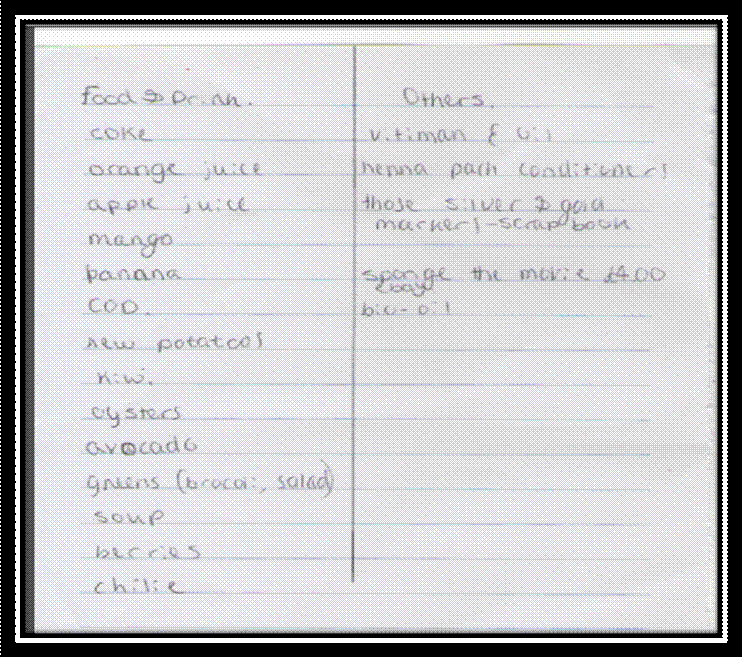 food & Drink.
coke
orange juice
apple juice
mango
banana
COD.
new potatoes
kiwi
oysters
avocado
greens (brocoli, salad)
soup
berries
chilie
Others.
vitiman E oil
henna pach conditioners
those silver & gold
markers - scrap book
sponge the movie £4.00
ebay
bio-oil